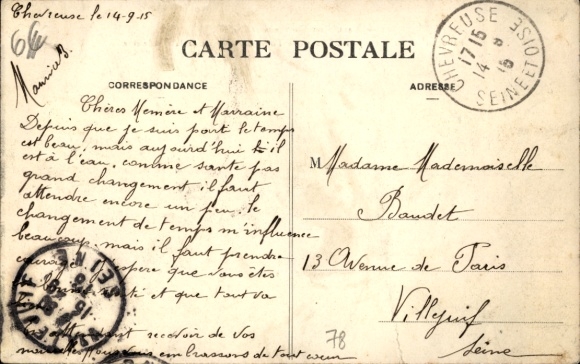 Chevreuse le 14-9-15
CARTE POSTALE
CORRESPONDANCE
ADRESSE
CHEVREUSE
17 15
14 9
15
SEINE ET OISE
Maurice B.
Chères Mémère et Marraine
Depuis que je suis parti le temps
est beau, mais aujourd'hui il
est à l'eau, comme santé pas
grand changement il faut
attendre encore un peu, le
changement de temps m'influence
beaucoup, mais il faut prendre
courage. J'espère que vous êtes
en bonne santé et que tout va
bien
En attendant recevoir de vos
nouvelles vous embrassons de tout coeur
M Madame Mademoiselle
Baudet
13 Avenue de Paris
Villejuif
Seine
78